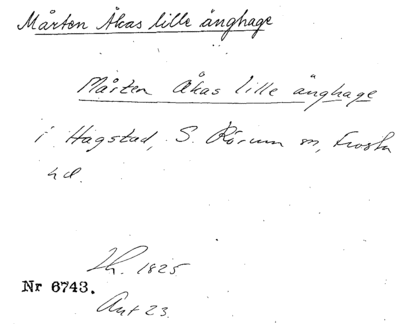 Mårten Åkas lille änghage
Mårten Åkas lille änghage
i Hagstad, S. Rörum sn, Frosta
hd.
Lh. 1825
Nr 6743.
Ant 23.